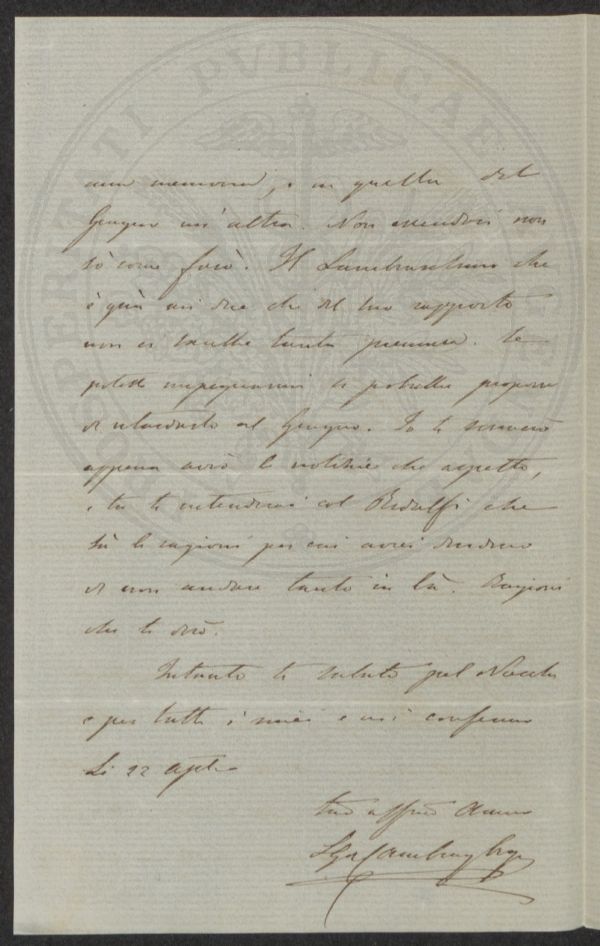 PROSPERITATI PVBLICAE
una memoria, e in quella del
Giugno un'altra. Non essendovi non
sò come farò. Il Lambruschini che
è quà mi dice che del tuo rapporto
non ci sarebbe tanta premura. Se
potesse impegnarmi si potrebbe proporre
di ritardarlo al Giugno. Io ti scriverò
appena avrò le notizie che aspetto,
e tu te intenderai col Ridolfi che
sà le ragioni per cui avrei desiderio
di non andare tanto in là. Ragioni
che ti dirò.
Intanto ti saluto pel
e per tutti i miei e mi confermo
Li 22
tuo affmo Amico